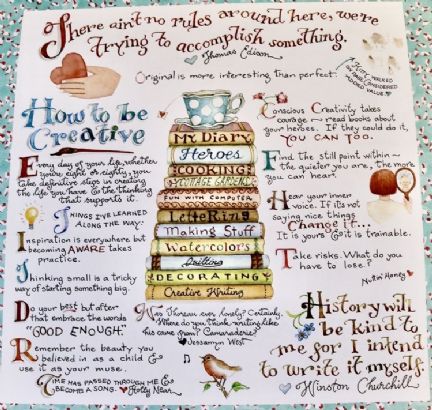 There ain't no rules around here, we're
trying to accomplish something.
Thomas Edison
Original is more interesting than perfect.
ADDED VALUE
How to be
Creative
Every day of your life, whether
you're eight or eighty, you
take definitive steps in creating
the life you have & the thinking
that supports it.
THINGS I'VE LEARNED
ALONG THE WAY:
Inspiration is everywhere but
becoming AWARE takes
practice.
Thinking small is a tricky
way of starting something big.
Do your best but after
that embrace the words
"GOOD ENOUGH."
Remember the beauty you
believed in as a child &
use it as your muse.
TIME HAS PASSED THROUGH ME &
BECOME A SONG. Holly Near
My Diary
Heroes
COOKING
COTTAGE GARDENS
FUN WITH COMPUTER
LetteRing
Making Stuff
Watercolors
Quilting
DECORATING
Creative Writing
Was Thoreau ever lonely? Certainly.
Where do you think writing like
his came from? Camaraderie?
Jessamyn West
Conscious Creativity takes
courage ~ read books about
your heroes. If they could do it,
YOU CAN TOO.
Find the still point within ~
the quieter you are, the more
you can hear.
Hear your inner
voice. If it's not
saying nice things
Change it...
It is yours & it is trainable.
Take risks. What do you
have to lose?
Nuttin' Honey
History will
be kind to
me for I intend
to write it myself.
Winston Churchill